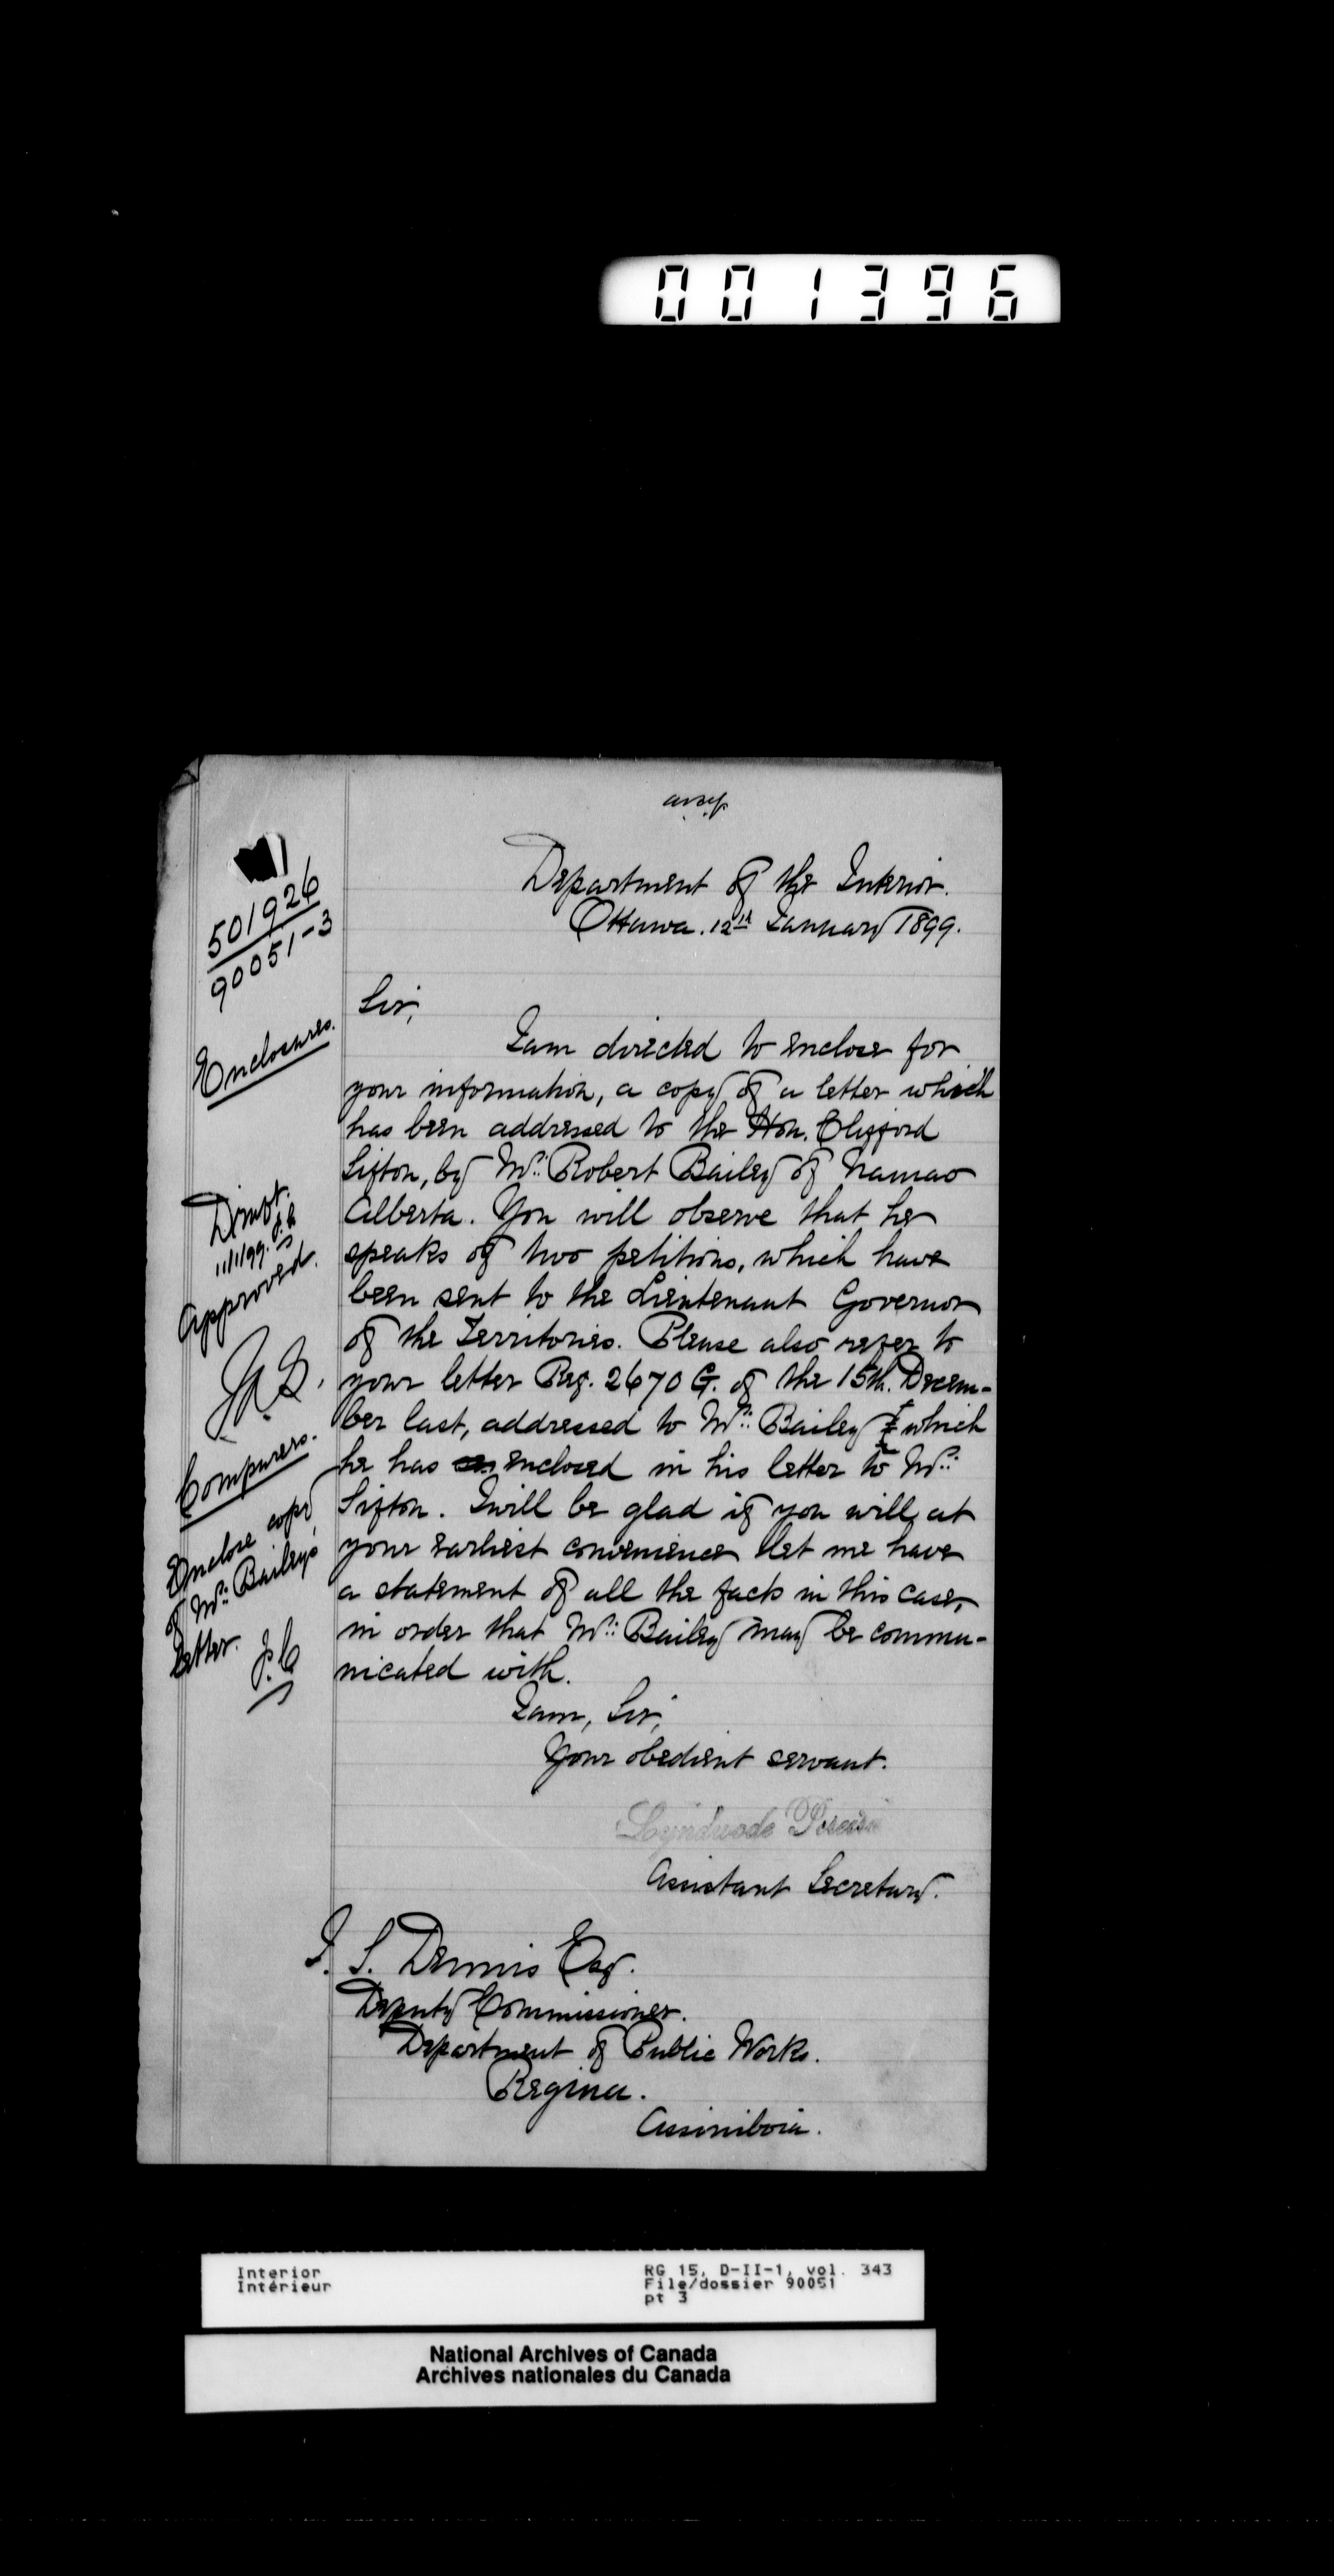 001396
Department of the Interior.
Ottawa. 12th January 1899.
501926
90051-3
Enclosures.
Sir,
I am directed to enclose for
your information, a copy of a letter which
has been addressed to the Hon. Clifford
Sifton, by Mr. Robert Bailey of Namao
Alberta. You will observe that he
speaks of two petitions, which have
been sent to the Lieutenant Governor
of the Territories. Please also refer to
your letter Reg. 2670 G. of the 15th. Decem-
ber last, addressed to Mr. Bailey & which
he has enclosed in his letter to Mr.
Sifton. I will be glad if you will at
your earliest convenience let me have
a statement of all the facts in this case,
in order that Mr. Bailey may be commu-
nicated with.
I am, Sir,
Your obedient servant.
Lyndwode Pereira
Assistant Secretary.
11/1/99.
Approved.
Comparers.
Enclose copy
of Mr. Bailey's
letter. J.C
J. S. Dennis Esq.
Deputy Commissioner.
Department of Public Works.
Regina.
Assiniboia.
Interior
Intérieur
RG 15, D-II-1, vol. 343
File/dossier 90051
pt 3
National Archives of Canada
Archives nationales du Canada